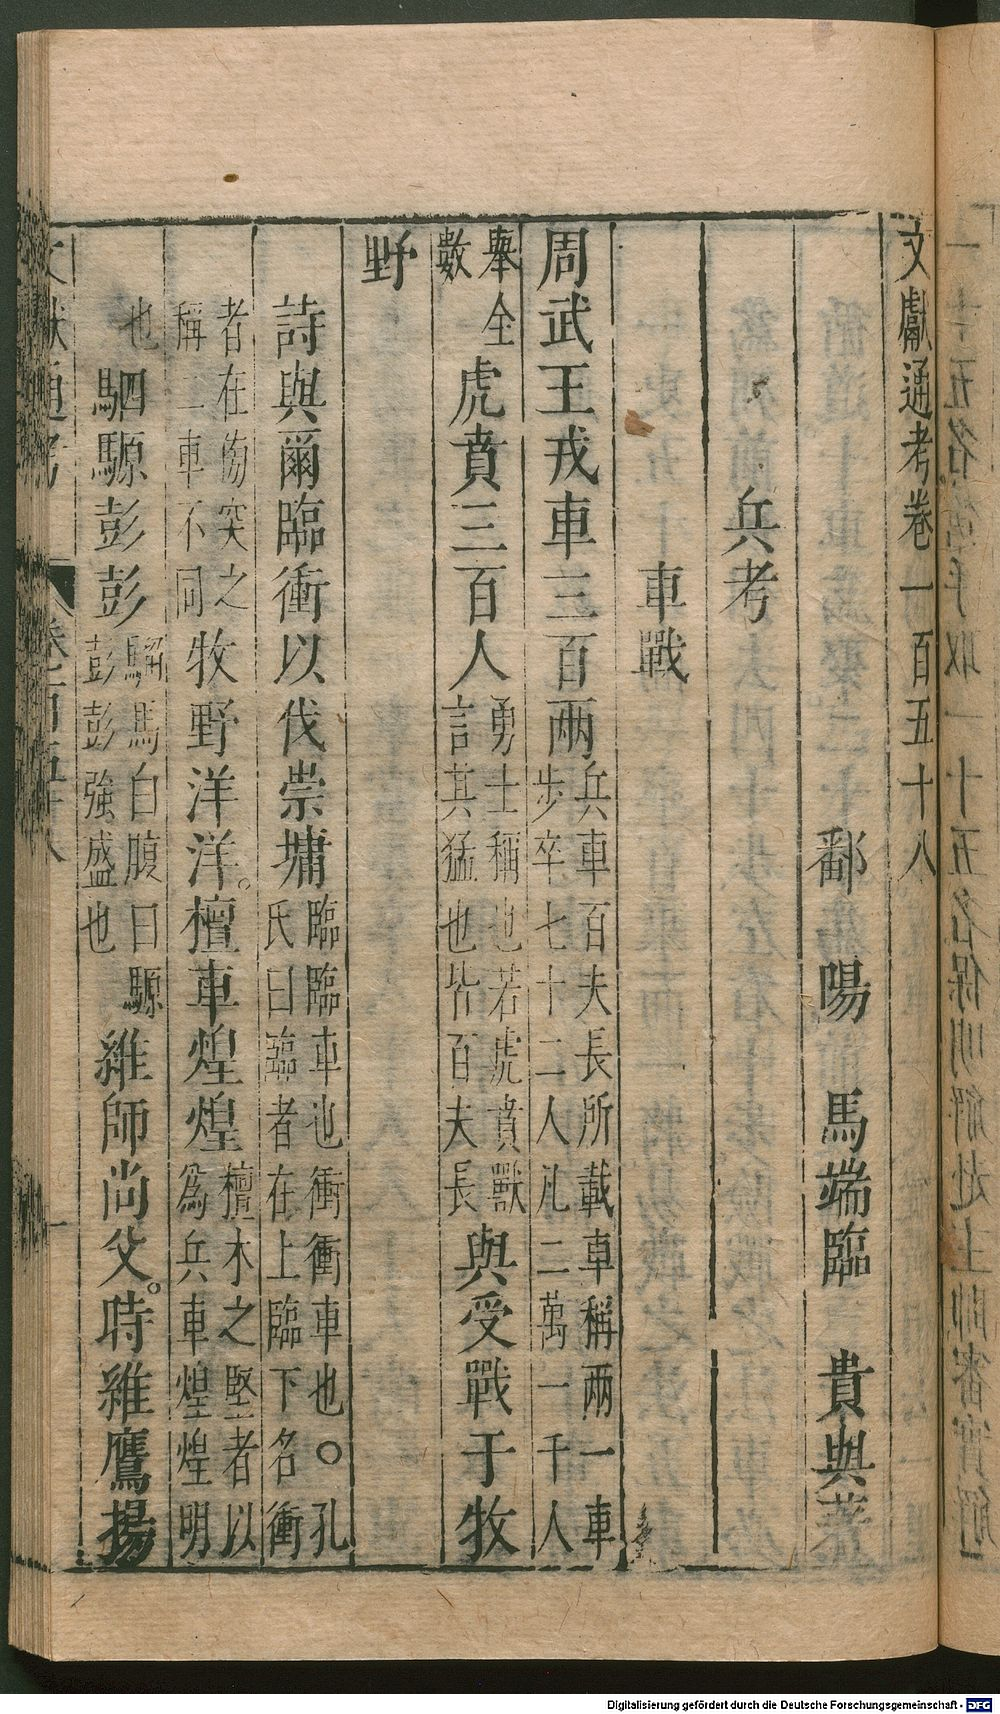 文獻通考卷一百五十八
鄱陽 馬端臨 貴與 著
兵考
車戰
周武王戎車三百兩兵車百夫長所載車稱兩一車步卒七十二人凡二萬一千人
舉全數虎賁三百人勇士稱也若虎賁獸言其猛也皆百夫長與受戰于牧
野
詩與爾臨衝以伐崇墉臨臨車也衝衝車也○孔氏曰臨者在上臨下名衝
者在傍突之稱二車不同牧野洋洋。檀車煌煌檀木之堅者以為兵車煌煌明
也駟騵彭彭騮馬白腹曰騵彭彭強盛也維師尚父。時維鷹揚
文獻通考 卷一百五十八 一
Digitalisierung gefördert durch die Deutsche Forschungsgemeinschaft - DFG